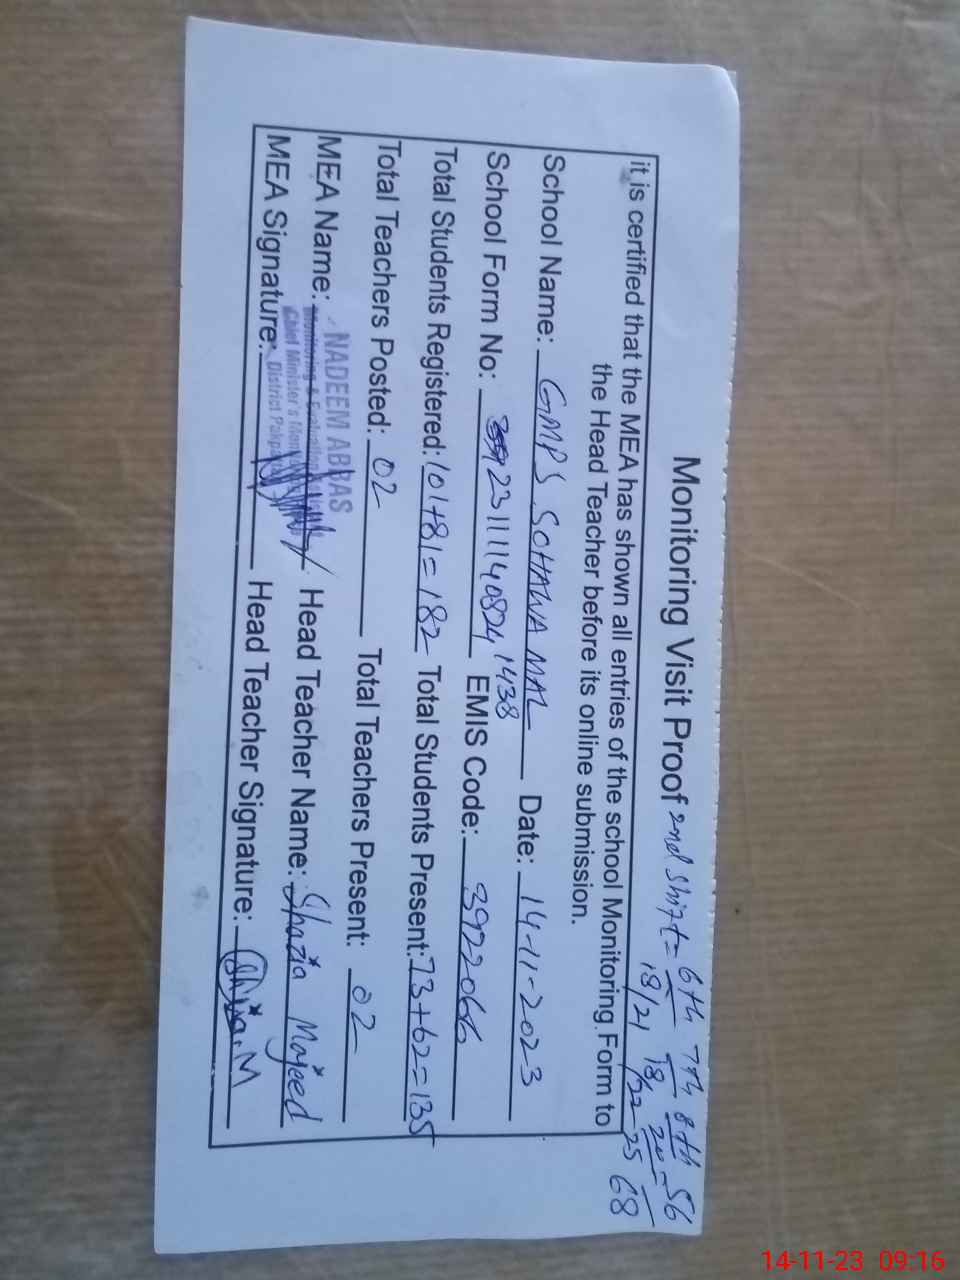 Monitoring Visit Proof 2nd Shift = 6th 7th 8th
18/21 18/22 20/25 = 56/68
it is certified that the MEA has shown all entries of the school Monitoring Form to
the Head Teacher before its online submission.
School Name: GMPS SOHAWA MAL Date: 14-11-2023
School Form No: 231111408241438 EMIS Code: 3922066
Total Students Registered: 101+81=182 Total Students Present: 73+62=135
Total Teachers Posted: 02 Total Teachers Present: 02
MEA Name: NADEEM ABBAS Head Teacher Name: Shazia Majeed
Monitoring & Evaluation
Chief Minister's
District Pakpattan
MEA Signature: Head Teacher Signature: Shazia.M
14-11-23 09:16